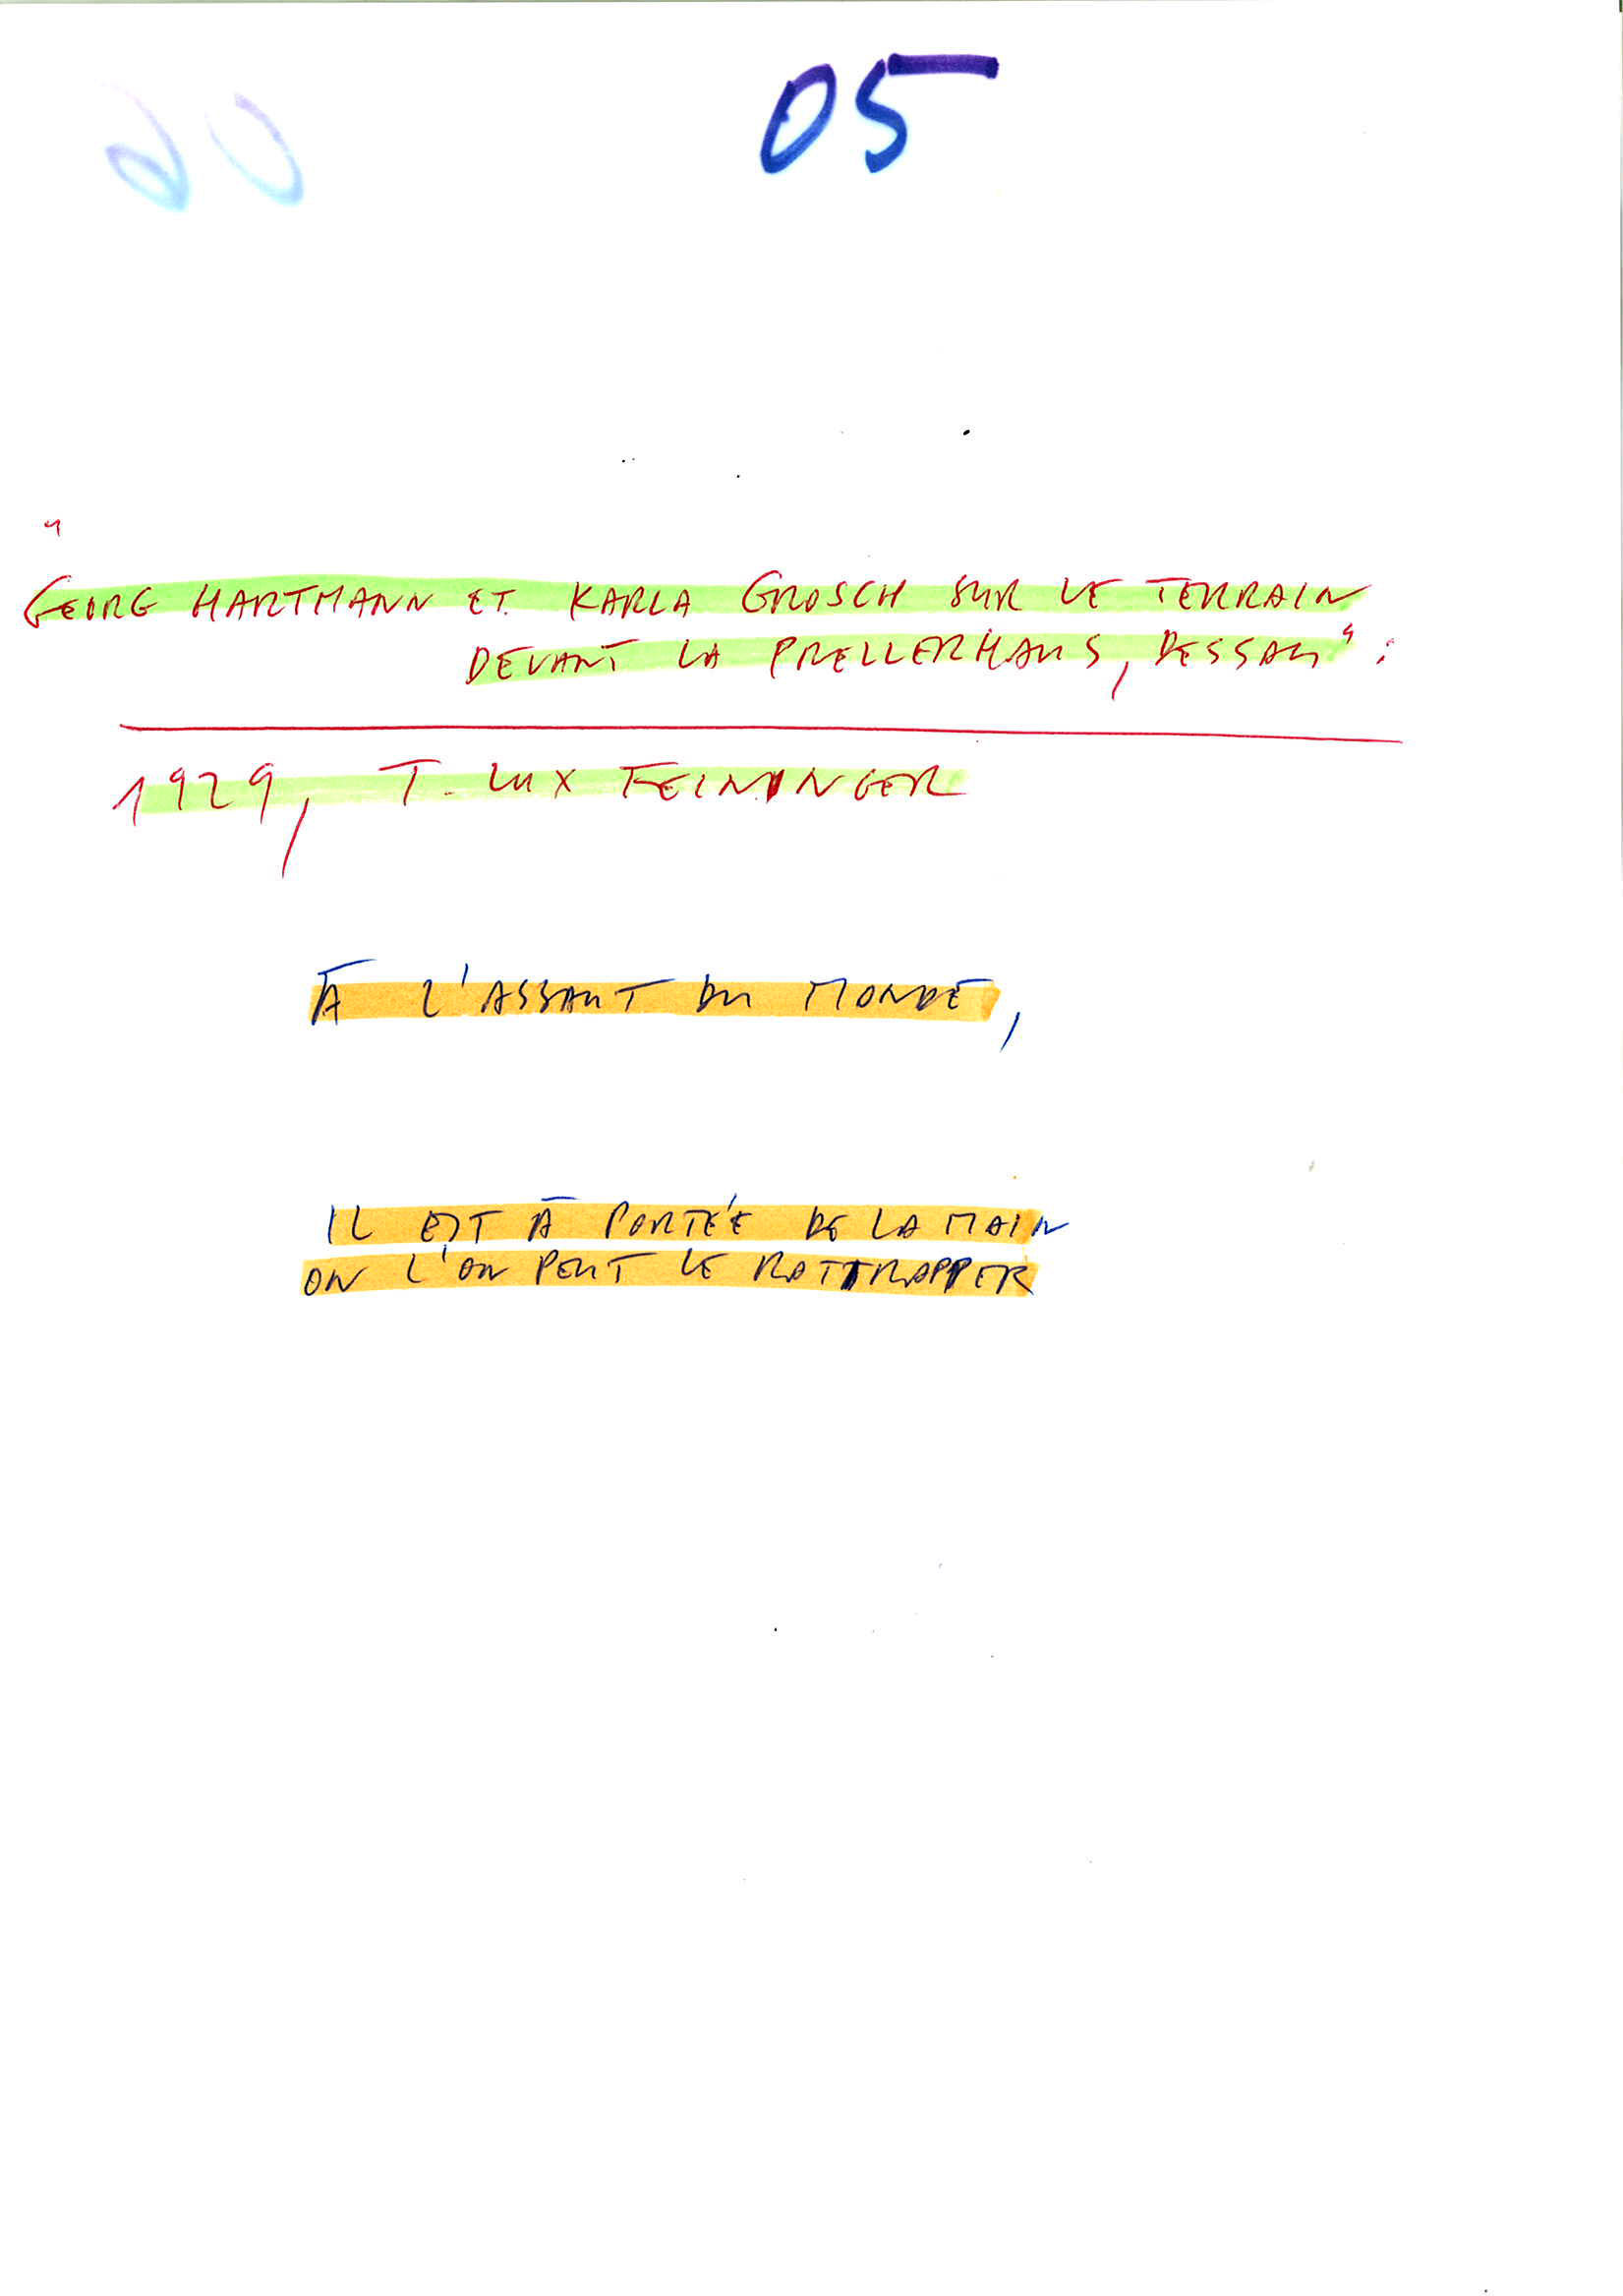 05
"
GEORG HARTMANN ET KARLA GROSCH SUR LE TERRAIN
DEVANT LA PRELLERHAUS, DESSAU" :
1929, T. LUX FEININGER
À L'ASSAUT DU MONDE,
IL EST À PORTÉE DE LA MAIN
OÙ L'ON PEUT LE RATTRAPPER